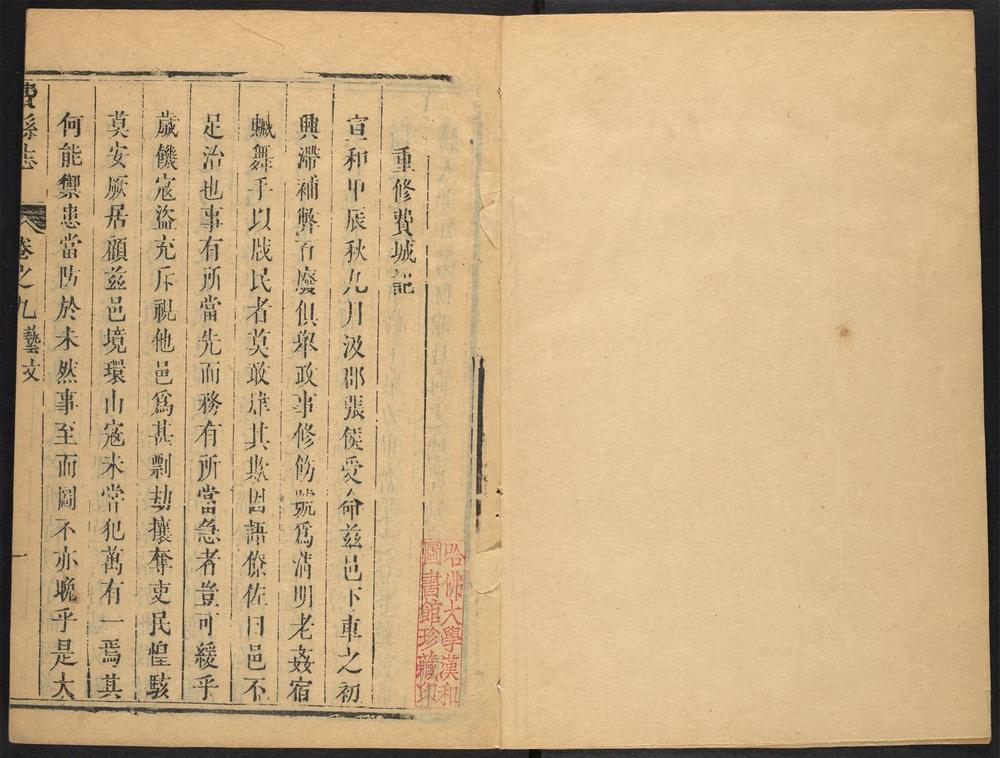 重修費城記
宣和甲辰秋九月汲郡張侯受命兹邑下車之初
興滯補弊百廢俱舉政事修飭號爲清明老姦宿
贓舞手以戕民者莫敢肆其欺因語僚佐曰邑不
足治也事有所當先而務有所當急者豈可緩乎
歲饑寇盜充斥視他邑爲甚剽劫攘奪吏民惶駭
莫安厥居顧兹邑境環山寇未嘗犯萬有一焉其
何能禦患當防於未然事至而圖不亦晚乎是大
費縣志 卷之九藝文 一
哈佛大學漢和
圖書館珍藏印